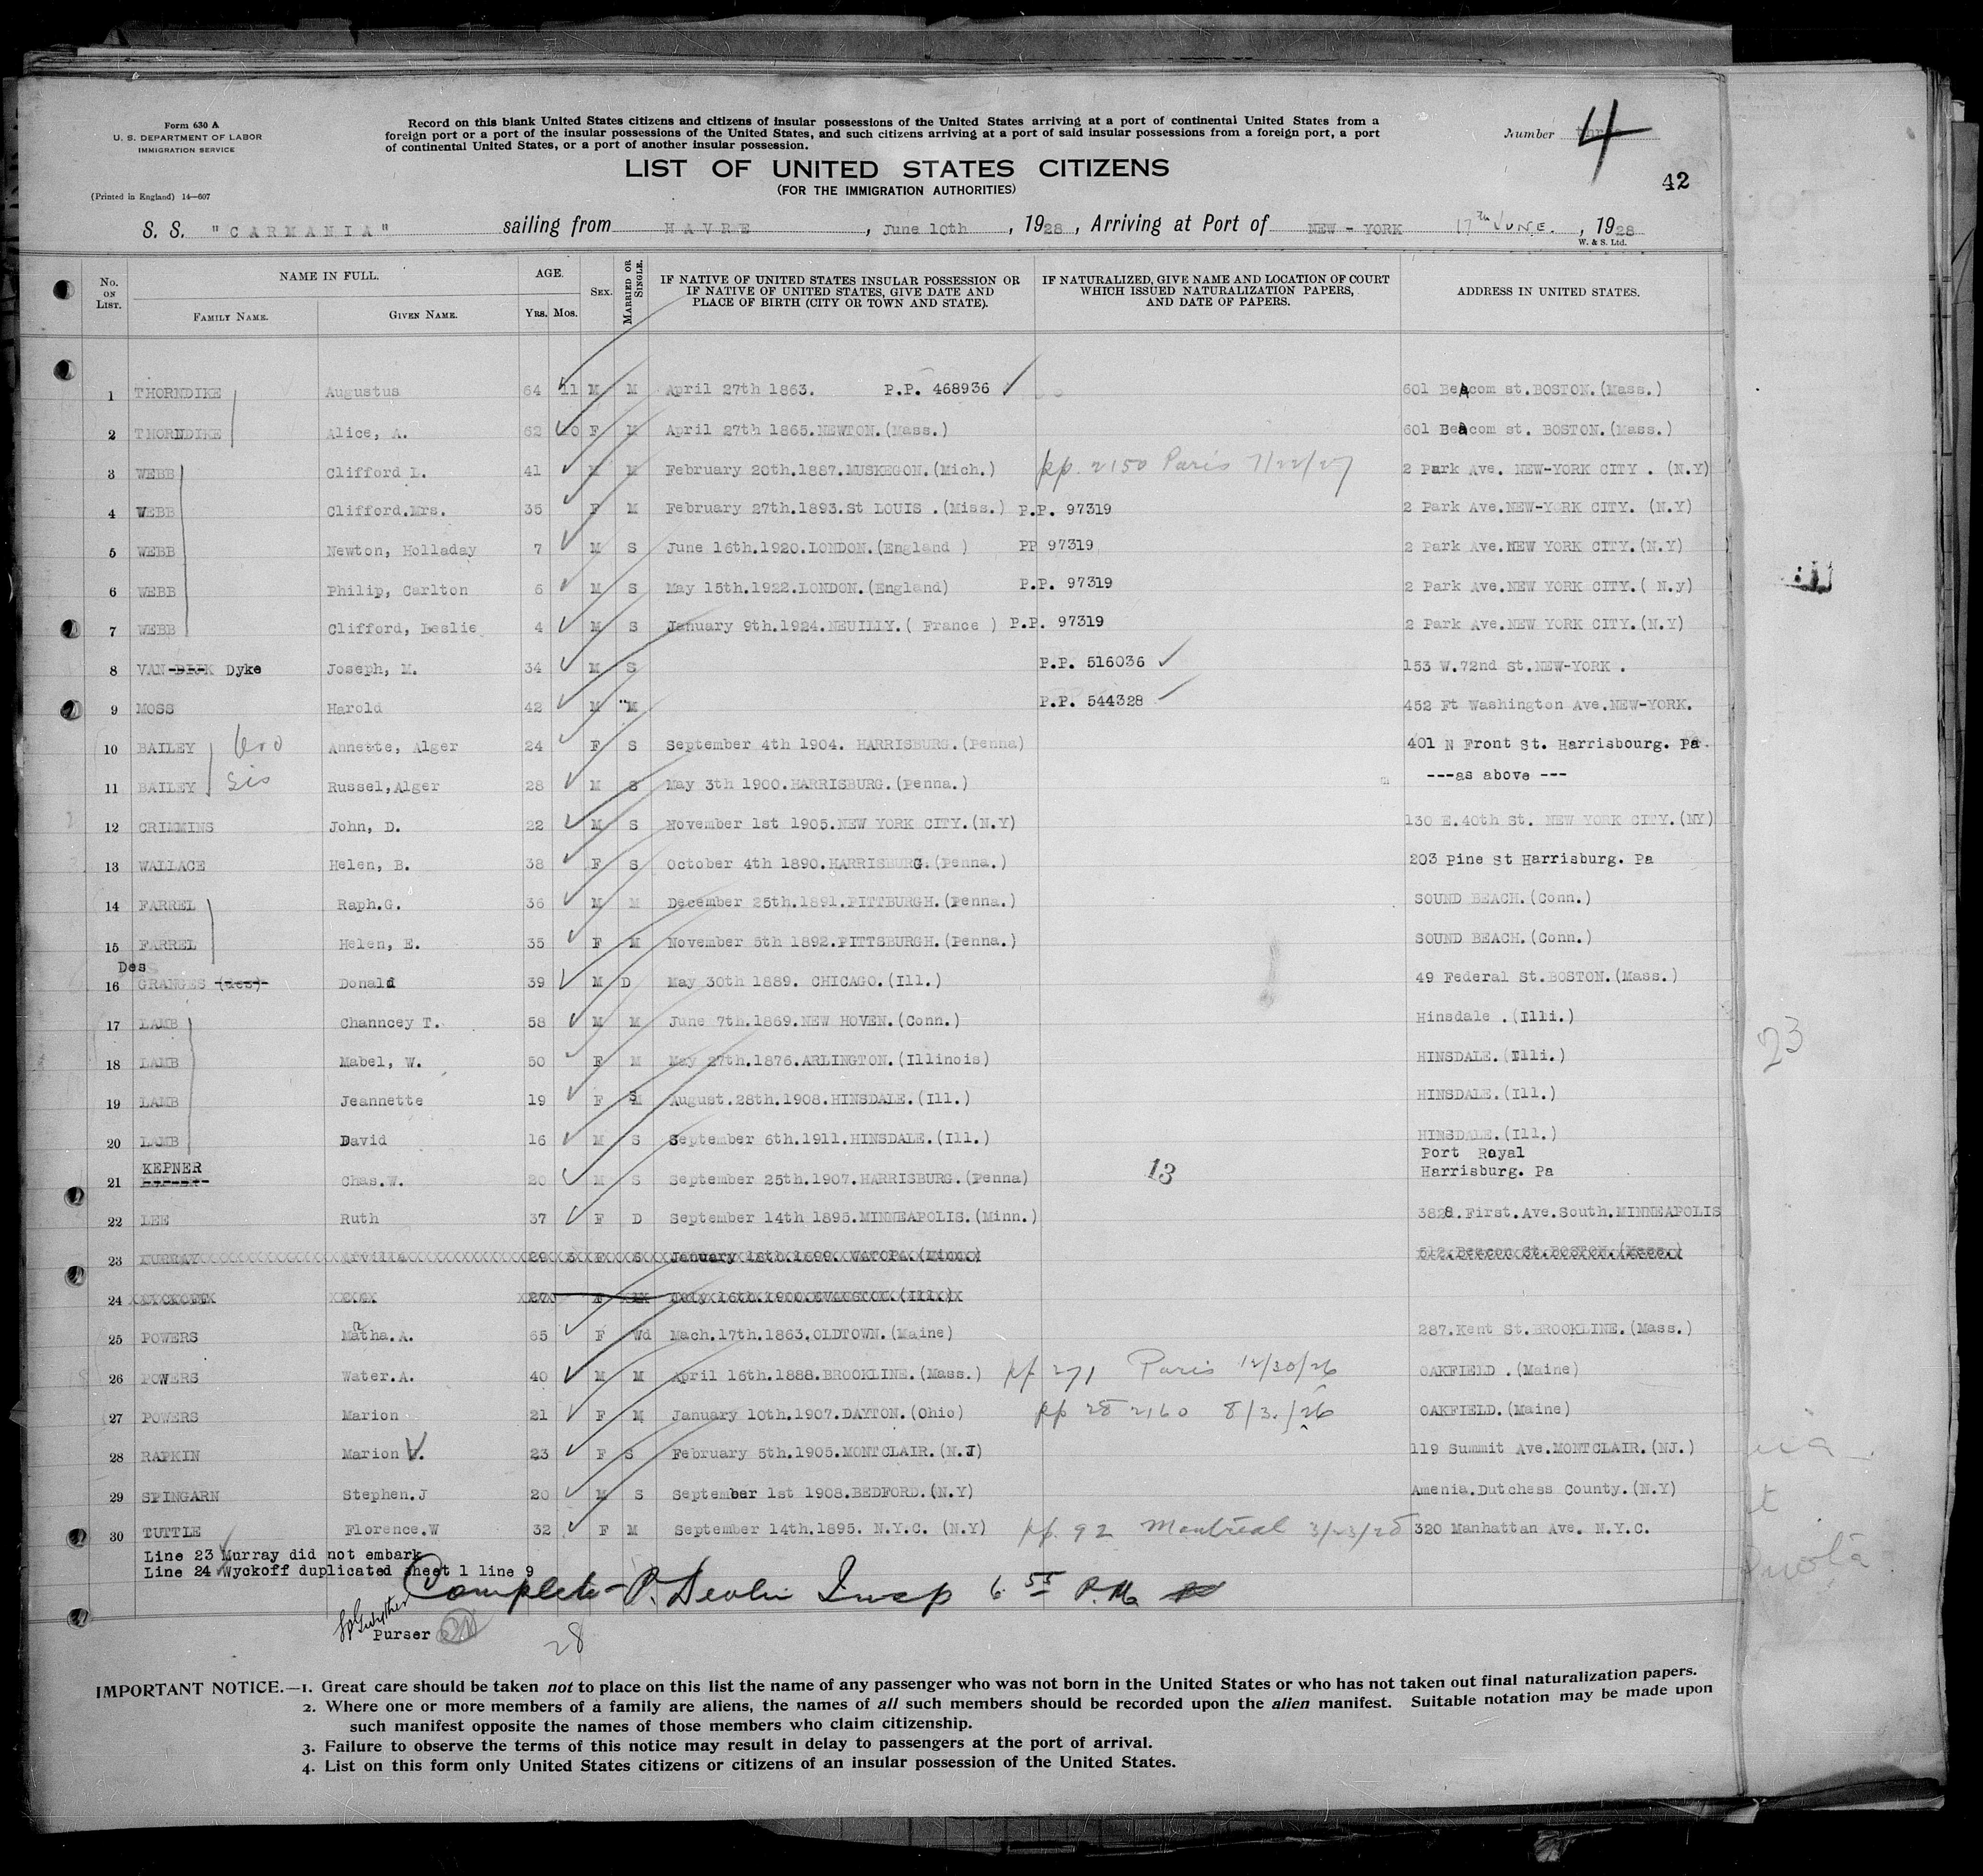 Form 630 A
U. S. DEPARTMENT OF LABOR
IMMIGRATION SERVICE
(Printed in England) 14—607
Record on this blank United States citizens and citizens of insular possessions of the United States arriving at a port of continental United States from a
foreign port or a port of the insular possessions of the United States, and such citizens arriving at a port of said insular possessions from a foreign port, a port
of continental United States, or a port of another insular possession.
Number 4
42
LIST OF UNITED STATES CITIZENS
(FOR THE IMMIGRATION AUTHORITIES)
S. S. "CARMANIA" sailing from HAVRE, June 10th, 1928, Arriving at Port of NEW-YORK 17th JUNE., 1928
W. & S. Ltd.
No. ON LIST. NAME IN FULL. FAMILY NAME. GIVEN NAME. AGE. YRS. MOS. SEX. MARRIED OR SINGLE. IF NATIVE OF UNITED STATES INSULAR POSSESSION OR IF NATIVE OF UNITED STATES, GIVE DATE AND PLACE OF BIRTH (CITY OR TOWN AND STATE). IF NATURALIZED, GIVE NAME AND LOCATION OF COURT WHICH ISSUED NATURALIZATION PAPERS, AND DATE OF PAPERS. ADDRESS IN UNITED STATES.
1 THORNDIKE Augustus 64 11 M M April 27th 1863. P.P. 468936 601 Beacom st.BOSTON.(Mass.)
2 THORNDIKE Alice, A. 62 10 F M April 27th 1865.NEWTON.(Mass.) 601 Beacom st. BOSTON.(Mass.)
3 WEBB Clifford L. 41 M M February 20th.1887.MUSKEGON.(Mich.) pp. 2150 Paris 7/22/27 2 Park Ave. NEW-YORK CITY . (N.Y)
4 WEBB Clifford.Mrs. 35 F M February 27th.1893.St LOUIS .(Miss.) P.P. 97319 2 Park Ave.NEW-YORK CITY. (N.Y)
5 WEBB Newton, Holladay 7 M S June 16th.1920.LONDON.(England ) PP 97319 2 Park Ave.NEW YORK CITY.(N.Y)
6 WEBB Philip, Carlton 6 M S May 15th.1922.LONDON.(England) P.P. 97319 2 Park Ave.NEW YORK CITY.( N.y)
7 WEBB Clifford, Leslie 4 M S January 9th.1924.NEUILLY.( France ) P.P. 97319 2 Park Ave.NEW YORK CITY.(N.Y)
8 VAN DIJK Dyke Joseph, M. 34 M S P.P. 516036 153 W.72nd St.NEW-YORK .
9 MOSS Harold 42 M M P.P. 544328 452 Ft Washington Ave.NEW-YORK.
10 BAILEY bro Annette, Alger 24 F S September 4th 1904. HARRISBURG.(Penna) 401 N Front St. Harrisbourg. Pa.
11 BAILEY sis Russel,Alger 28 M S May 3th 1900.HARRISBURG.(Penna.) ---as above ---
12 CRIMMINS John, D. 22 M S November 1st 1905.NEW YORK CITY.(N.Y) 130 E.40th St. NEW YORK CITY.(NY)
13 WALLACE Helen, B. 38 F S October 4th 1890.HARRISBURG.(Penna.) 203 Pine St Harrisburg. Pa
14 FARREL Raph.G. 36 M M December 25th.1891.PITTBURGH.(Penna.) SOUND BEACH.(Conn.)
15 FARREL Helen, E. 35 F M November 5th 1892.PITTSBURGH.(Penna.) SOUND BEACH.(Conn.)
Des
16 GRANGES (des) Donald 39 M D May 30th 1889. CHICAGO.(Ill.) 49 Federal St.BOSTON.(Mass.)
17 LAMB Channcey T. 58 M M June 7th.1869.NEW HOVEN.(Conn.) Hinsdale .(Illi.)
18 LAMB Mabel, W. 50 F M May 27th.1876.ARLINGTON.(Illinois) HINSDALE.(Illi.)
19 LAMB Jeannette 19 F S August.28th.1908.HINSDALE.(Ill.) HINSDALE.(Ill.)
20 LAMB David 16 M S September 6th.1911.HINSDALE.(Ill.) HINSDALE.(Ill.)
KEPNER Port Royal
21 Chas.W. 20 M S September 25th.1907.HARRISBURG.(Penna) 13 Harrisburg. Pa
22 LEE Ruth 37 F D September 14th 1895.MINNEAPOLIS.(Minn.) 3828.First.Ave.South.MINNEAPOLIS
23 29 F S January 18th.1899. 512 Beacon St.BOSTON.(Mass.)
24 27 F July 16th.1900.EVANSTON.(Ill.)
25 POWERS Matha.A. 65 F Wd Mach.17th.1863.OLDTOWN.(Maine) 287.Kent St.BROOKLINE.(Mass.)
26 POWERS Water.A. 40 M M April 16th.1888.BROOKLINE.(Mass.) pp 271 Paris 12/30/26 OAKFIELD .(Maine)
27 POWERS Marion 21 F M January 10th.1907.DAYTON.(Ohio) pp 28 2160 8/3/26 OAKFIELD.(Maine)
28 RAPKIN Marion V. 23 F S February 5th.1905.MONTCLAIR.(N.J) 119 Summit Ave.MONTCLAIR.(NJ.)
29 SPINGARN Stephen.J 20 M S September 1st 1908.BEDFORD.(N.Y) Amenia.Dutchess County.(N.Y)
30 TUTTLE Florence.W 32 F M September 14th.1895. N.Y.C. (N.Y) pp. 92 Montreal 3/23/28 320 Manhattan Ave. N.Y.C.
Line 23 Murray did not embark
Line 24 Wyckoff duplicated sheet 1 line 9
Complete P. Devlin Insp 6 55 P.M.
Purser
28
23
IMPORTANT NOTICE.—1. Great care should be taken not to place on this list the name of any passenger who was not born in the United States or who has not taken out final naturalization papers.
2. Where one or more members of a family are aliens, the names of all such members should be recorded upon the alien manifest. Suitable notation may be made upon
such manifest opposite the names of those members who claim citizenship.
3. Failure to observe the terms of this notice may result in delay to passengers at the port of arrival.
4. List on this form only United States citizens or citizens of an insular possession of the United States.